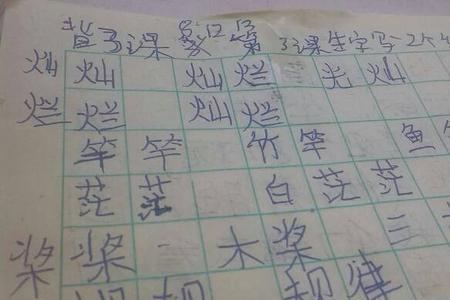 背3课 家12 第3课生字写2个
灿 灿 灿 烂 光 灿
烂 烂 灿 烂
竿 竿 竹 竿 鱼
茫 茫 白 茫 茫
桨 桨 木 桨 三
规